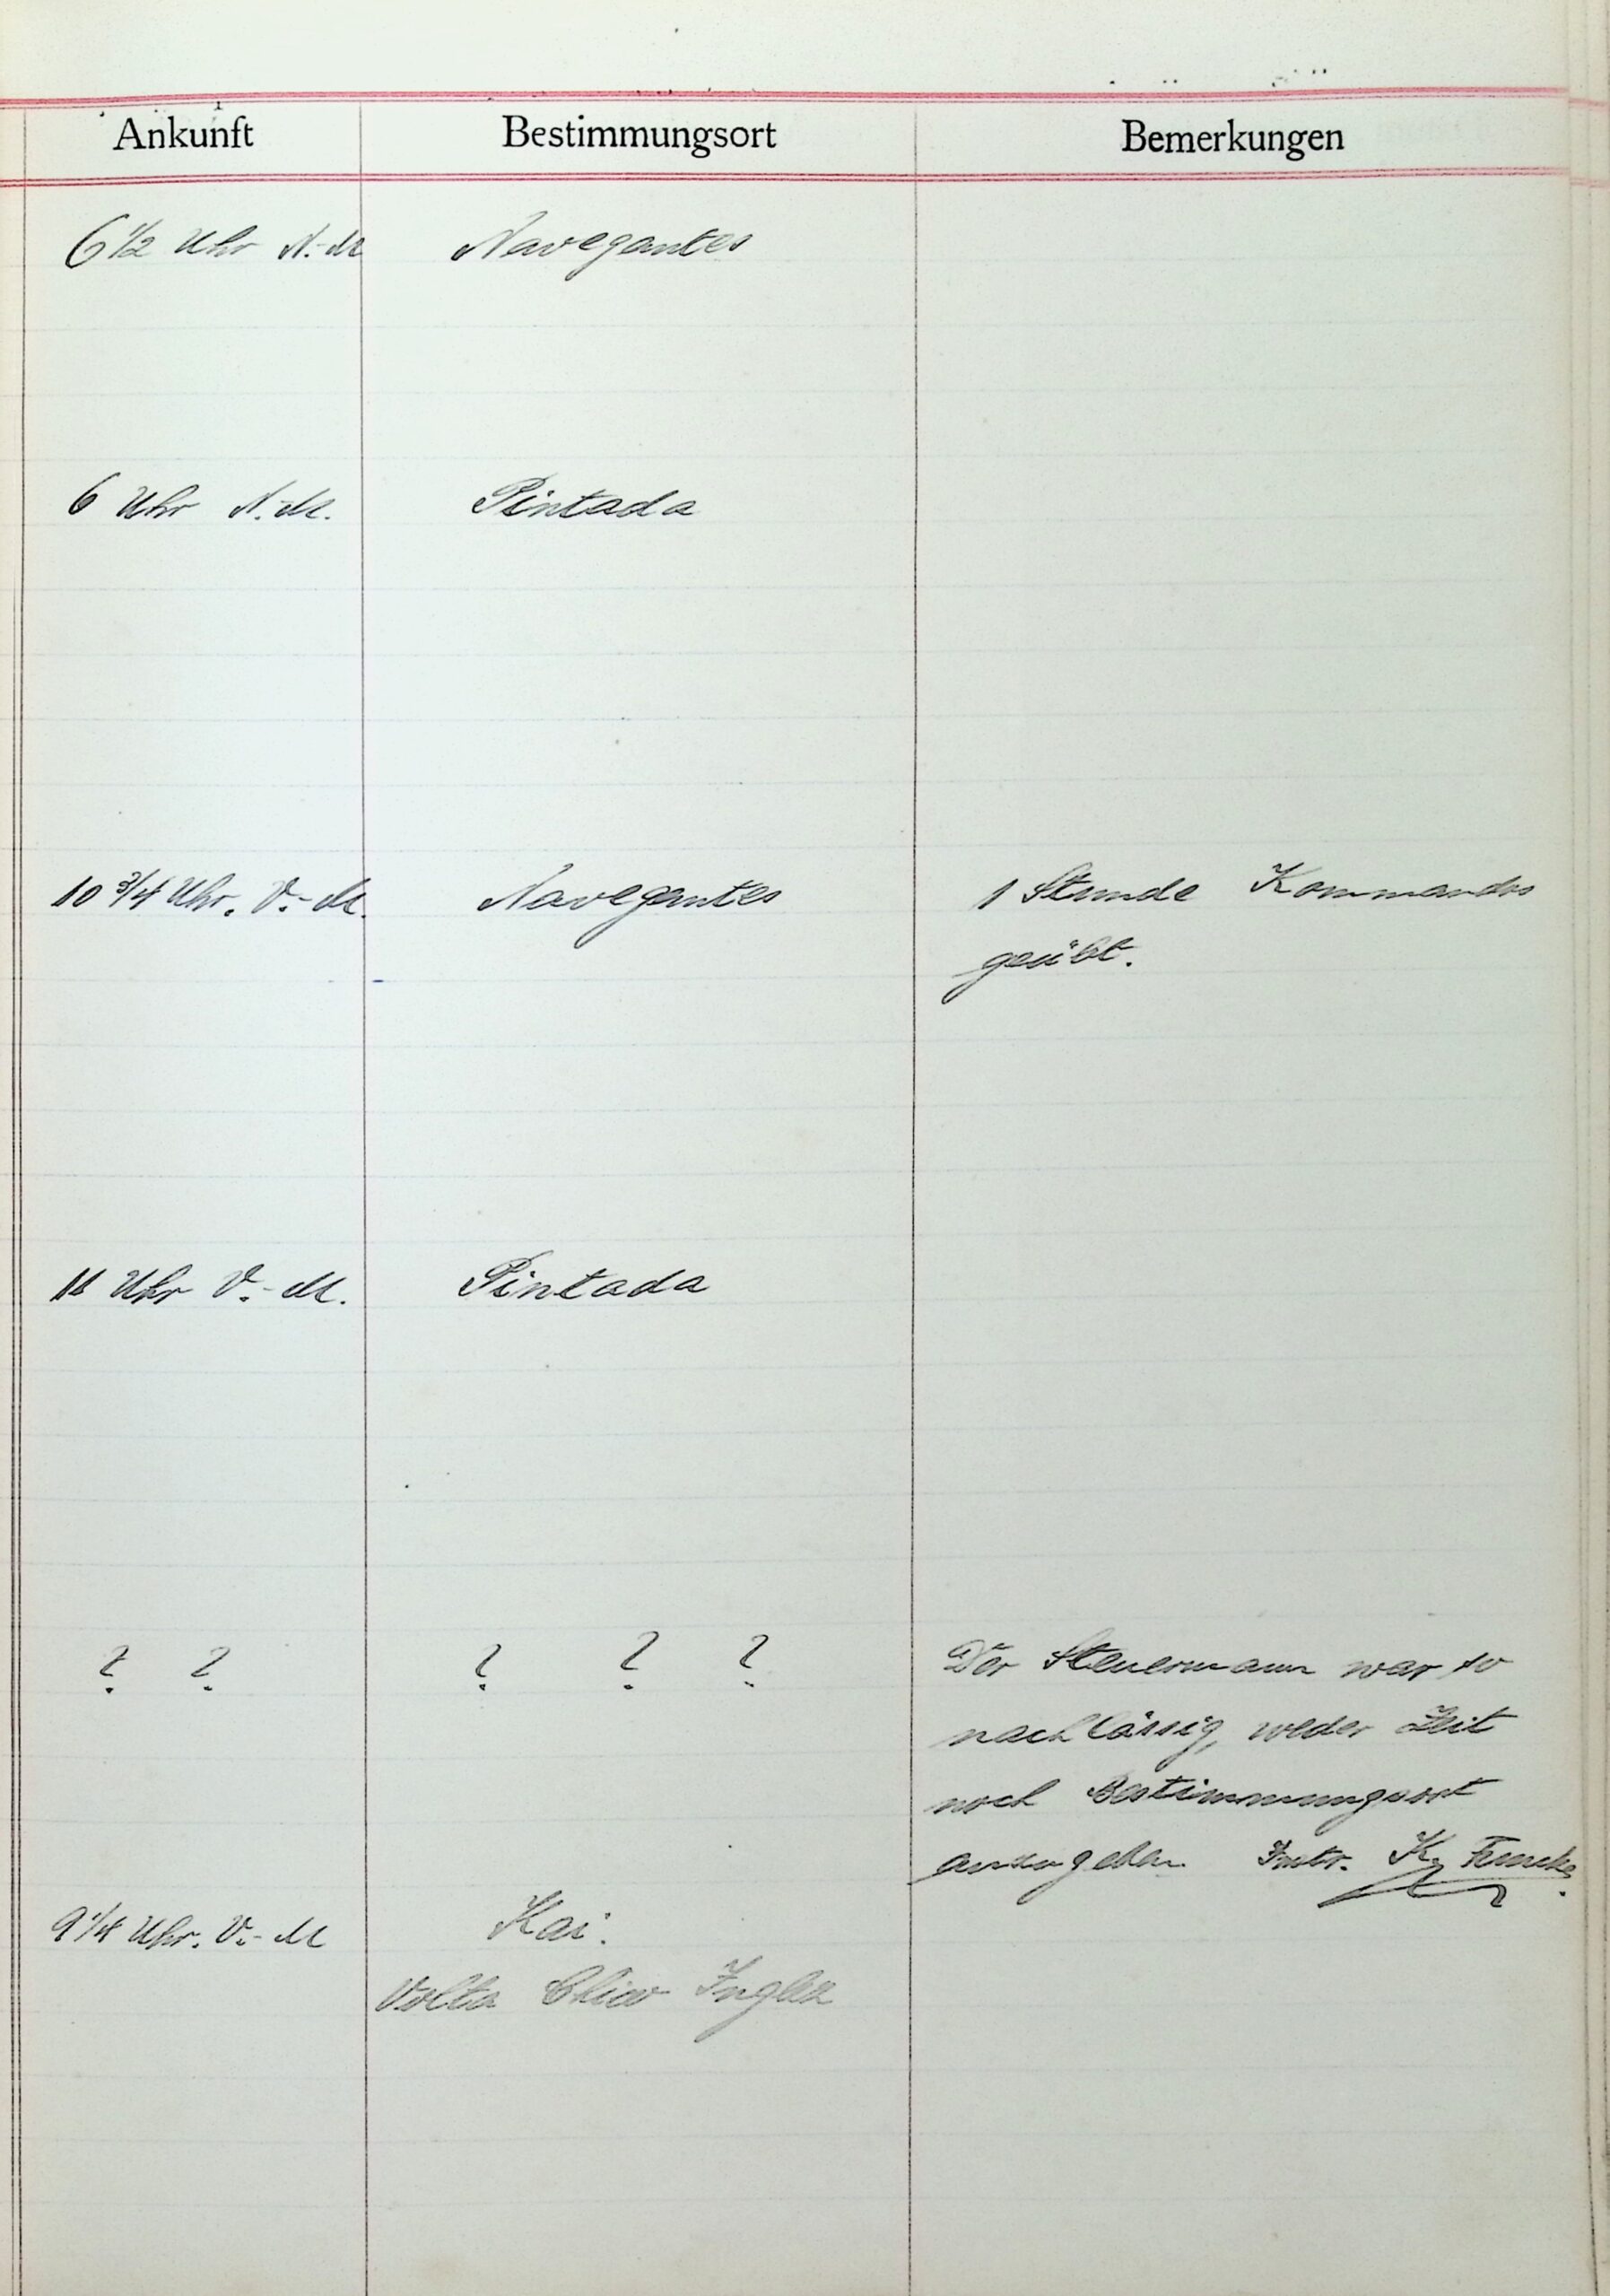 Ankunft Bestimmungsort Bemerkungen
6 1/2 Uhr N.-M Navegantes
6 Uhr N.-M. Pintada
10 3/4 Uhr. V.-M. Navegantes 1 Stunde Kommandos
geübt.
11 Uhr V.-M. Pintada
? ? ? ? ? Der Steuermann war so
nachlässig, weder Zeit
noch Bestimmungsort
anzugeben. Instr. K. Funcke.
9 1/4 Uhr. V.-M Kai.
Volta Chico Inglez